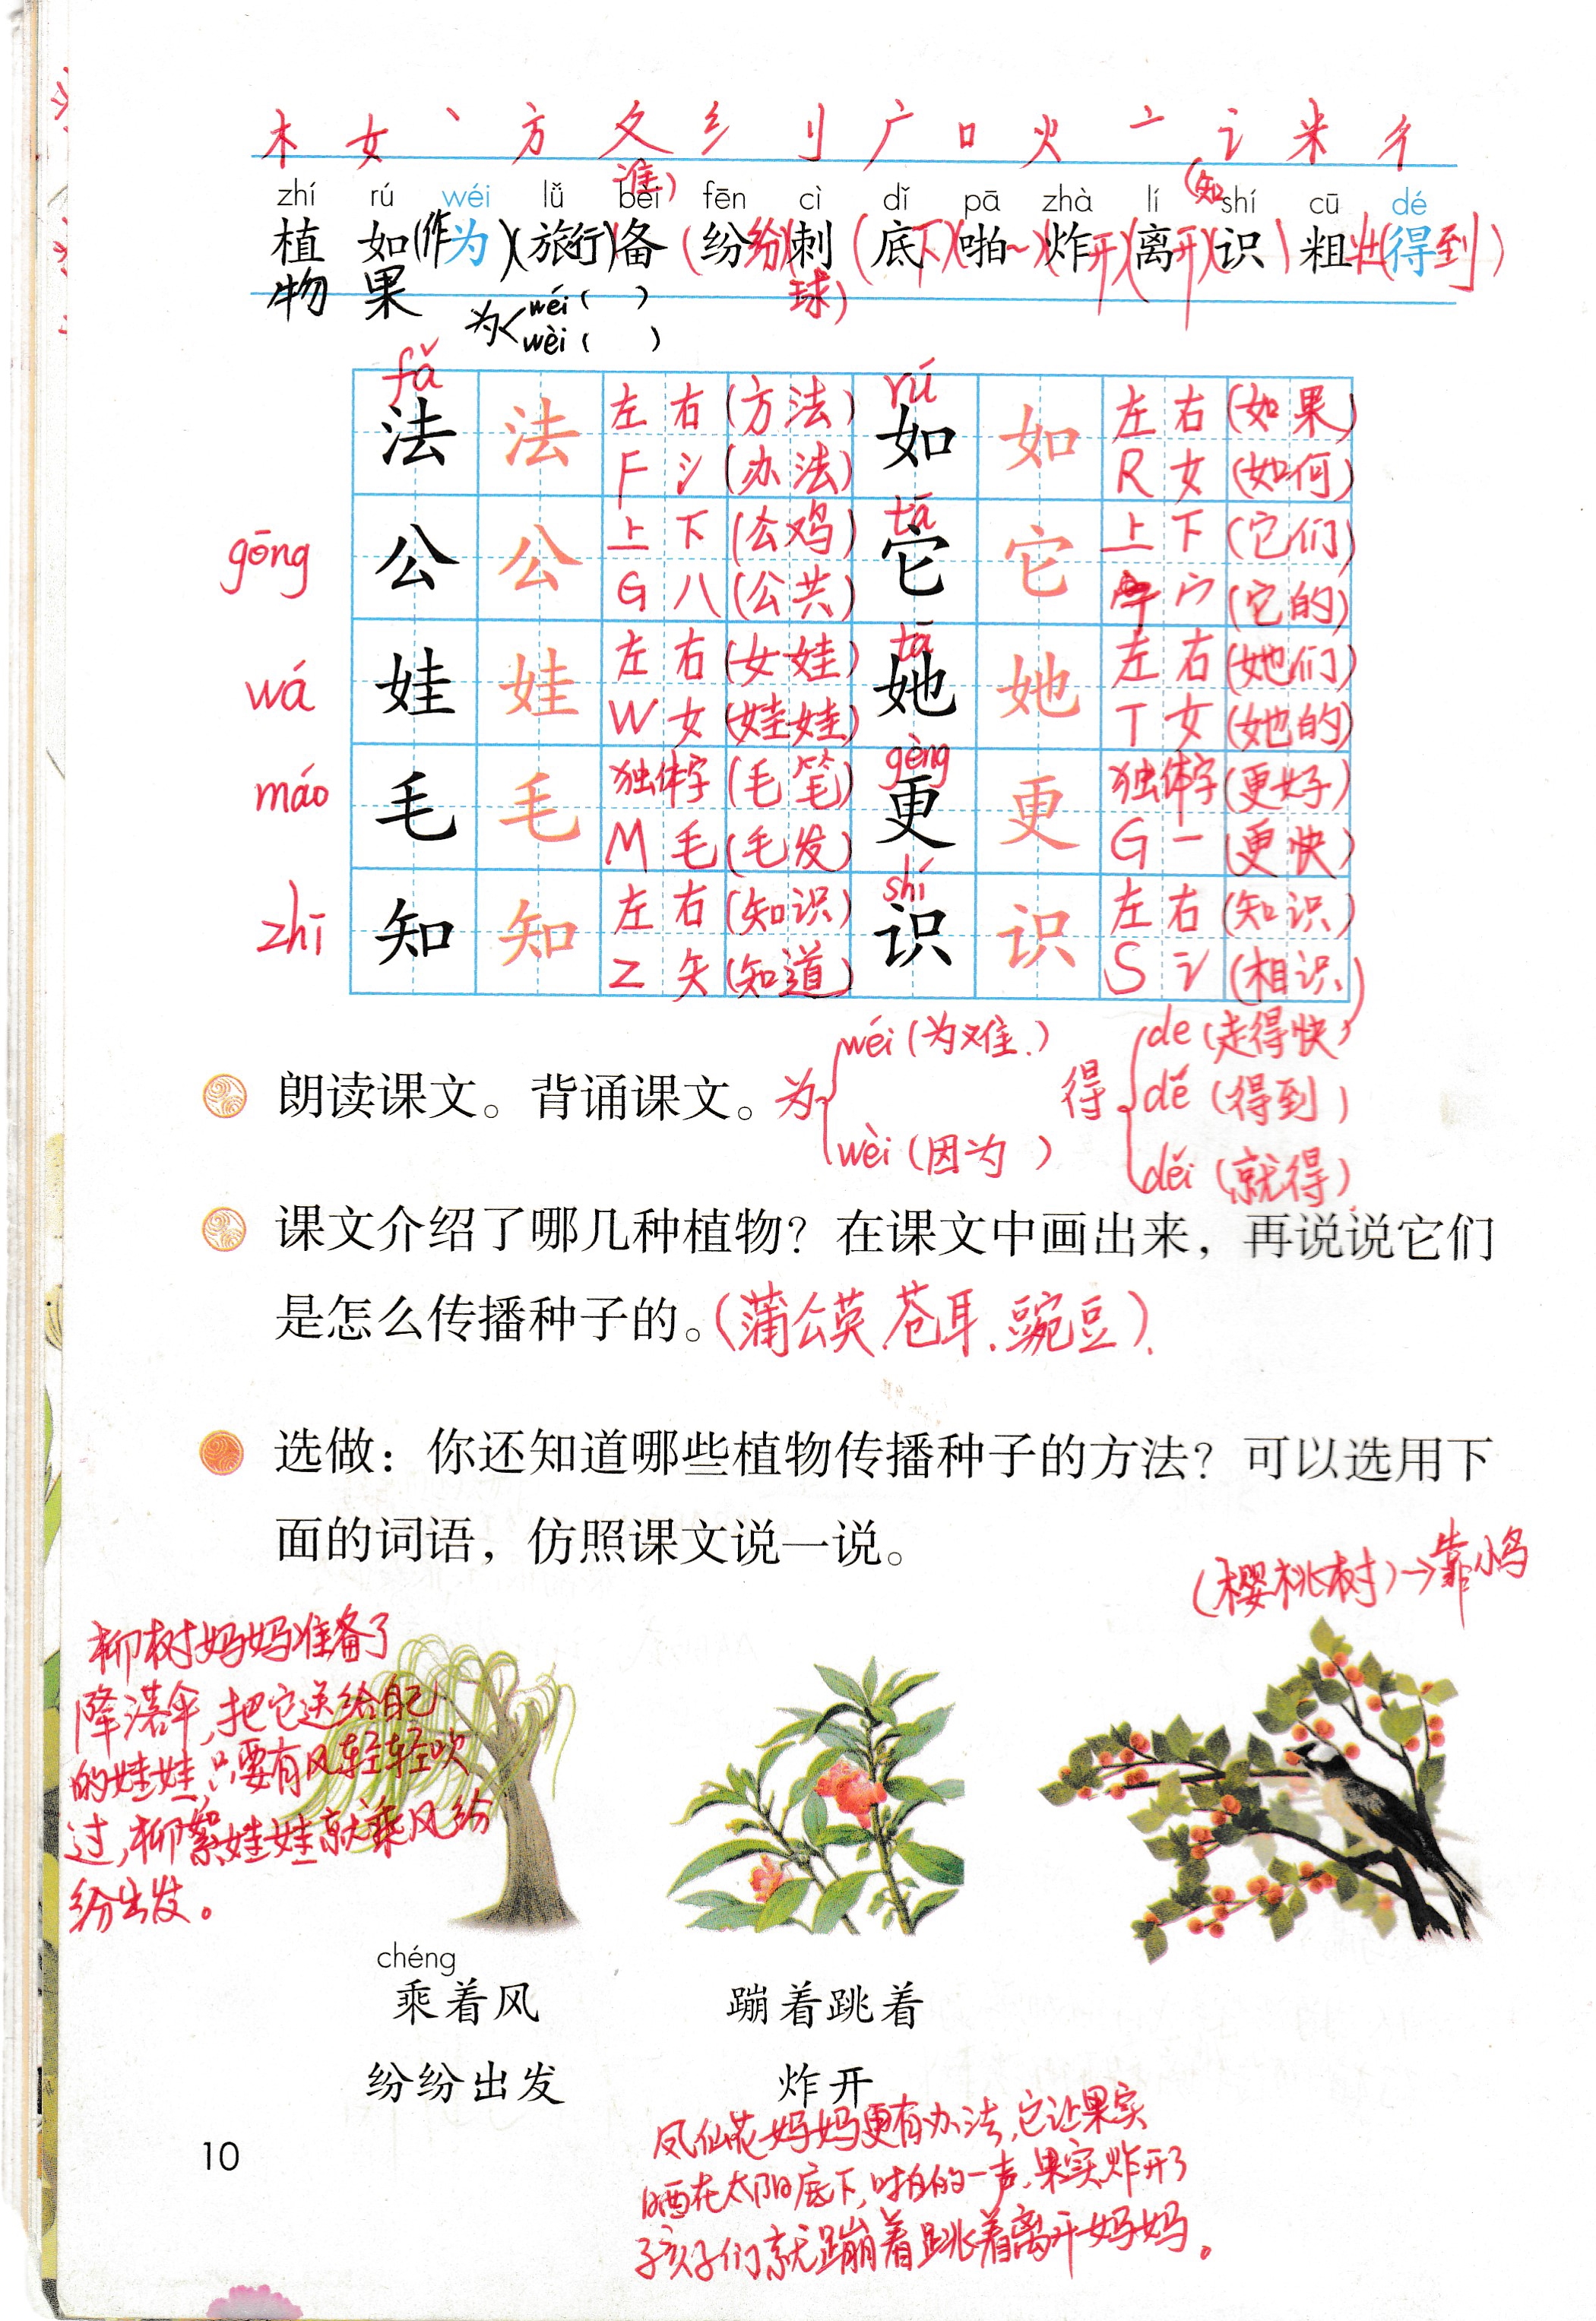 木 女 丶 方 夂 纟 刂 广 口 火 亠 讠 米 彳
zhí rú wéi lǚ bèi fēn cì dǐ pā zhà lí shí cū dé
植 如(作为)(旅行)(准备)(纷纷)(刺 (底下)(啪~)(炸开)(离开)(知识) 粗壮(得到)
物 果 球)
为 wéi( )
wèi( )
fǎ 法 法 左 右 (方法) rú 如 如 左 右 (如果)
F 氵 (办法) R 女 (如何)
gōng 公 公 上 下 (公鸡) tā 它 它 上 下 (它们)
G 八 (公共) 宀 (它的)
wá 娃 娃 左 右 (女娃) tā 她 她 左 右 (她们)
W 女 (娃娃) T 女 (她的)
máo 毛 毛 独体字 (毛笔) gèng 更 更 独体字 (更好)
M 毛 (毛发) G 一 (更快)
zhī 知 知 左 右 (知识) shí 识 识 左 右 (知识)
Z 矢 (知道) S 讠 (相识)
朗读课文。背诵课文。
为 wéi (为难.)
wèi (因为)
得 de (走得快)
dé (得到)
děi (就得)
课文介绍了哪几种植物？在课文中画出来，再说说它们
是怎么传播种子的。(蒲公英.苍耳.豌豆).
选做：你还知道哪些植物传播种子的方法？可以选用下
面的词语，仿照课文说一说。
(樱桃树)→靠小鸟
柳树妈妈准备了
降落伞,把它送给自己
的娃娃,只要有风轻轻吹
过,柳絮娃娃就乘风纷
纷出发。
chéng
乘着风
纷纷出发
蹦着跳着
炸开
凤仙花妈妈更有办法,它让果实
晒在太阳底下,啪的一声,果实炸开了
孩子们就蹦着跳着离开妈妈。
10